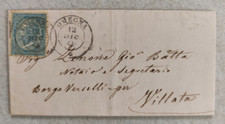 OMEGNA
12
DIC
Sig. Zanone Gio Batta
Notaio e Segretario
Borgo Vercelli per
Villata